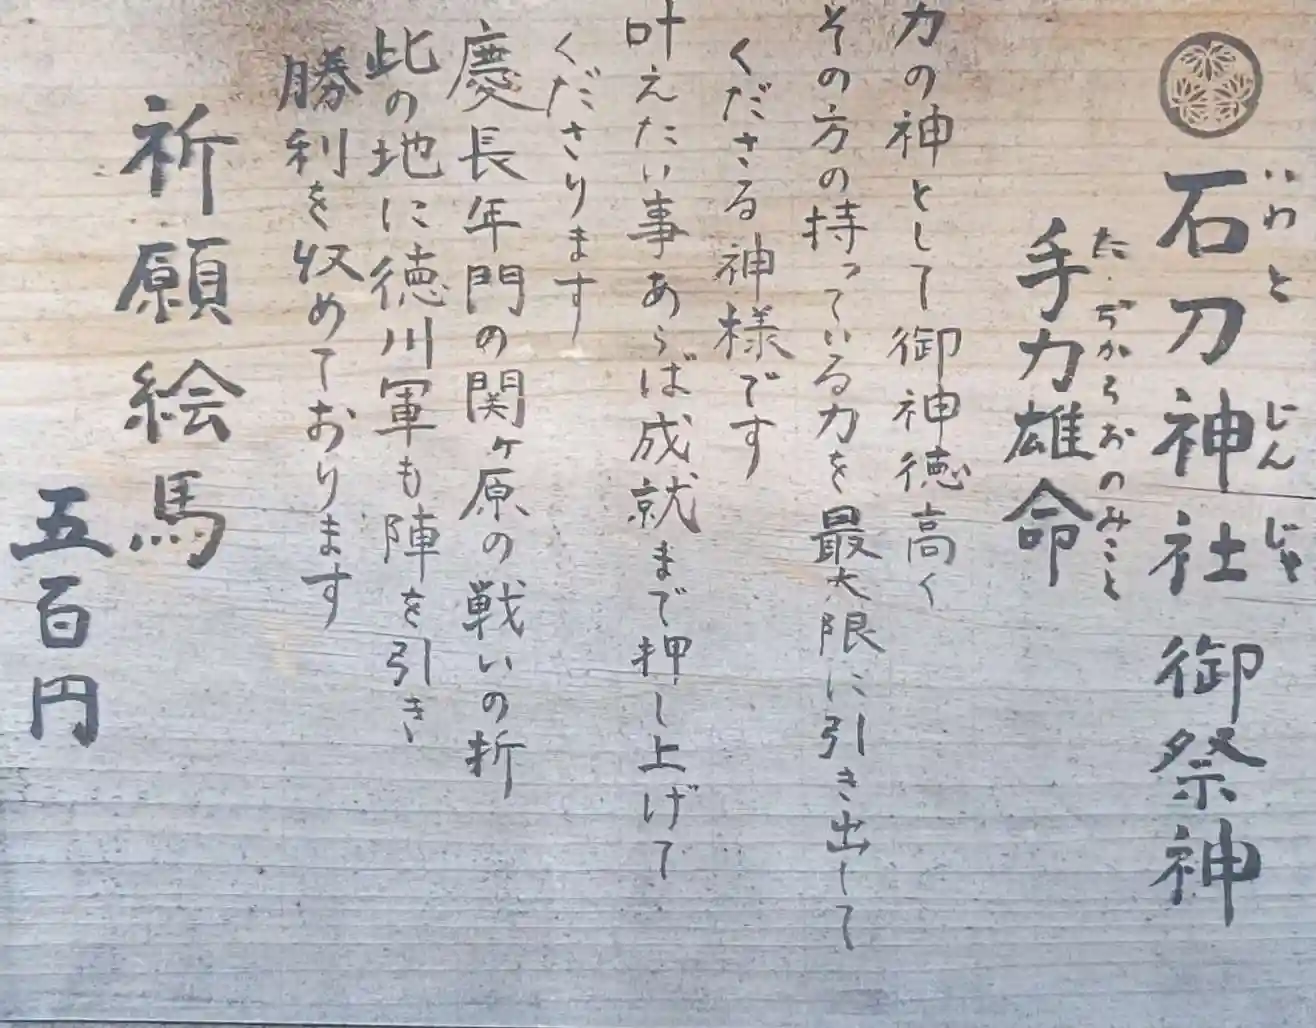 石刀神社御祭神
いわと じんじゃ
手力雄命
たぢからおのみこと
力の神として御神徳高く
その方の持っている力を最大限に引き出して
くださる神様です
叶えたい事あらば成就まで押し上げて
くださります
慶長年門の関ヶ原の戦いの折
此の地に徳川軍も陣を引き
勝利を収めております
祈願絵馬
五百円